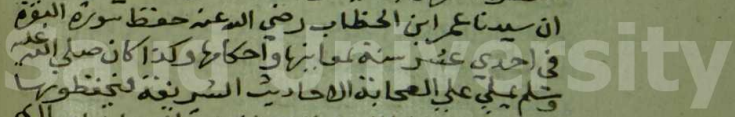 ان سيدنا عمر ابن الخطاب رضي الله عنه حفظ سورة البقرة
في احدي عشر سنة بمعانيها واحكامها وكذا كان صلي الله عليه
وسلم يملي علي الصحابة الاحاديث الشريفة فيحفظونها